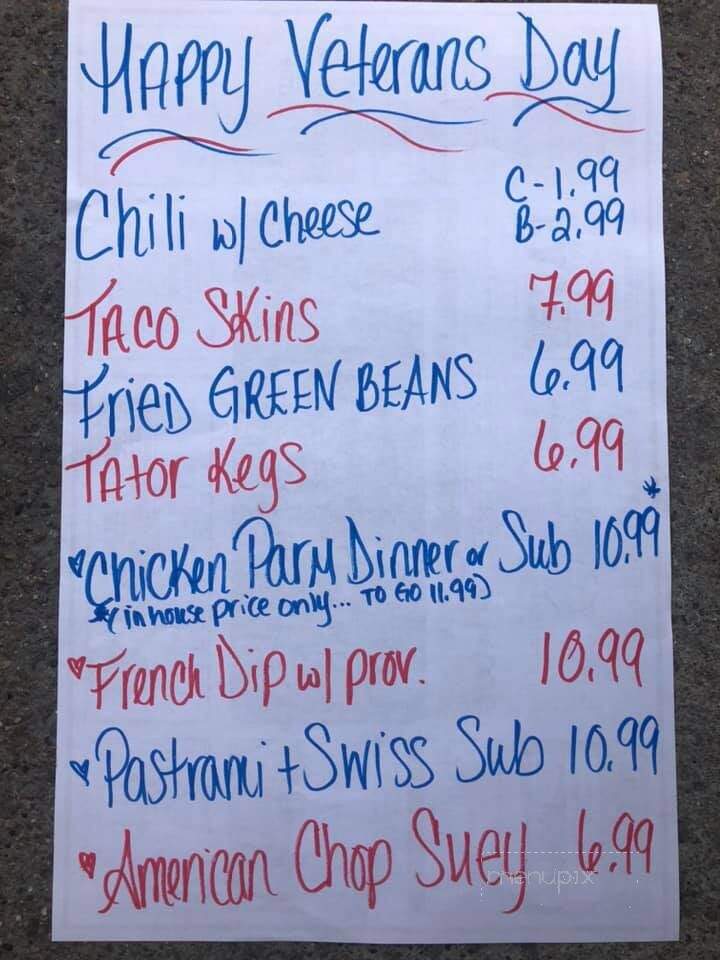 HAPPY Veterans Day
Chili w/ Cheese C-1.99
B-2.99
TACO SKins 7.99
FrieD GREEN BEANS 6.99
TAtor Kegs 6.99
♥Chicken Parm Dinner or Sub 10.99*
*(in house price only... TO GO 11.99)
♥French Dip w/ prov. 10.99
♥Pastrami + Swiss Sub 10.99
♥American Chop Suey 6.99
menupix